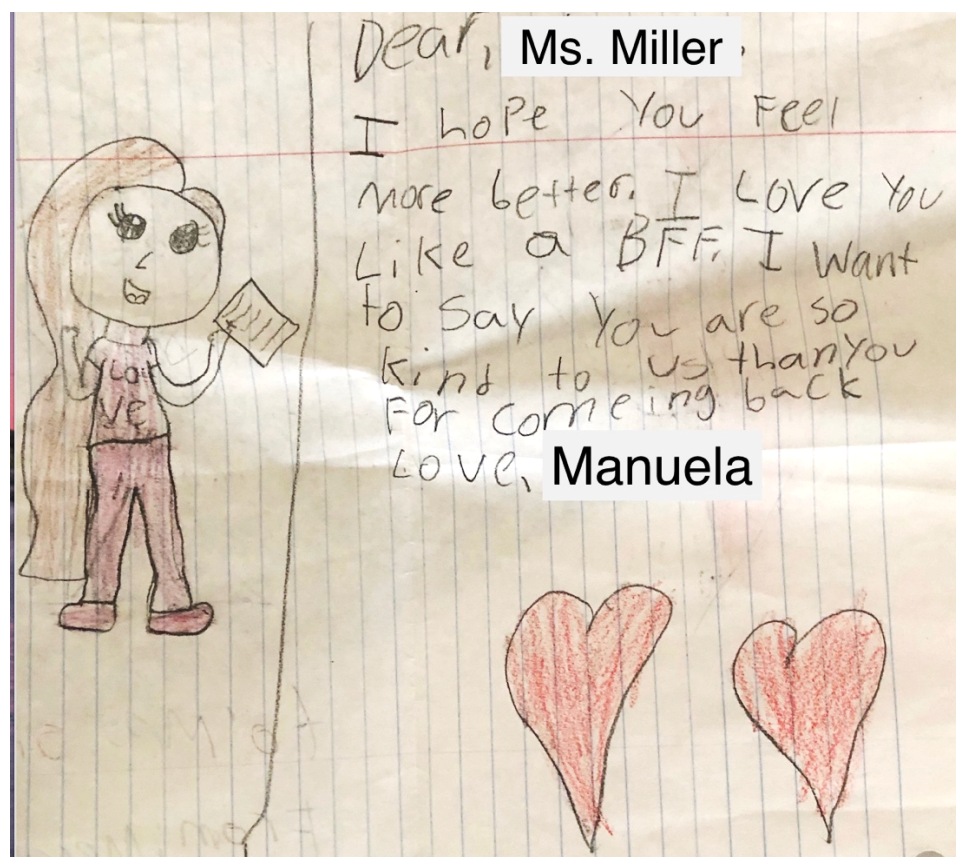 Dear, Ms. Miller.
I hope You Feel
more better. I Love You
Like a BFF. I Want
to Say You are so
kind to us thanyou
For comeing back
Love, Manuela
Lo
ve